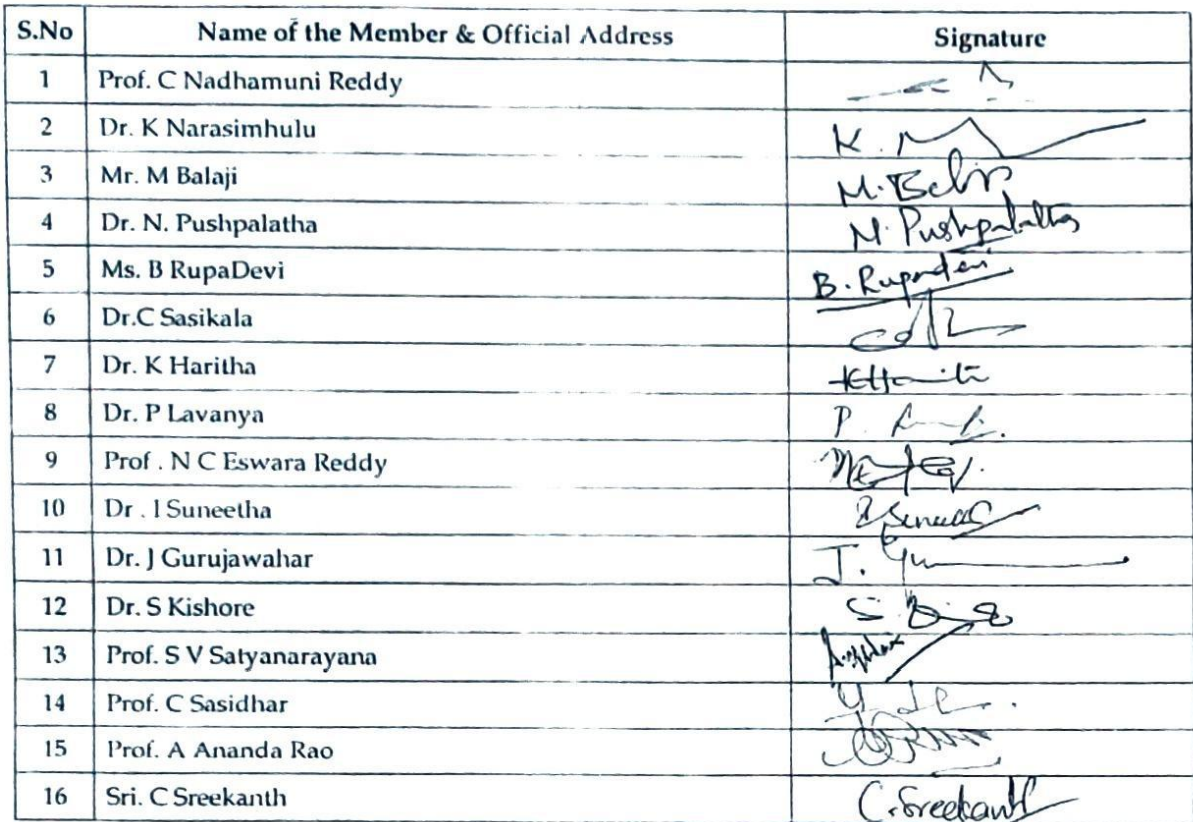 S.No Name of the Member & Official Address Signature
1 Prof. C Nadhamuni Reddy
2 Dr. K Narasimhulu K.
3 Mr. M Balaji M.
4 Dr. N. Pushpalatha N. Pushpalatha
5 Ms. B RupaDevi B. Rupadevi
6 Dr.C Sasikala
7 Dr. K Haritha
8 Dr. P Lavanya P.
9 Prof . N C Eswara Reddy
10 Dr . I Suneetha
11 Dr. J Gurujawahar J.
12 Dr. S Kishore S
13 Prof. S V Satyanarayana
14 Prof. C Sasidhar
15 Prof. A Ananda Rao
16 Sri. C Sreekanth C. Sreekanth